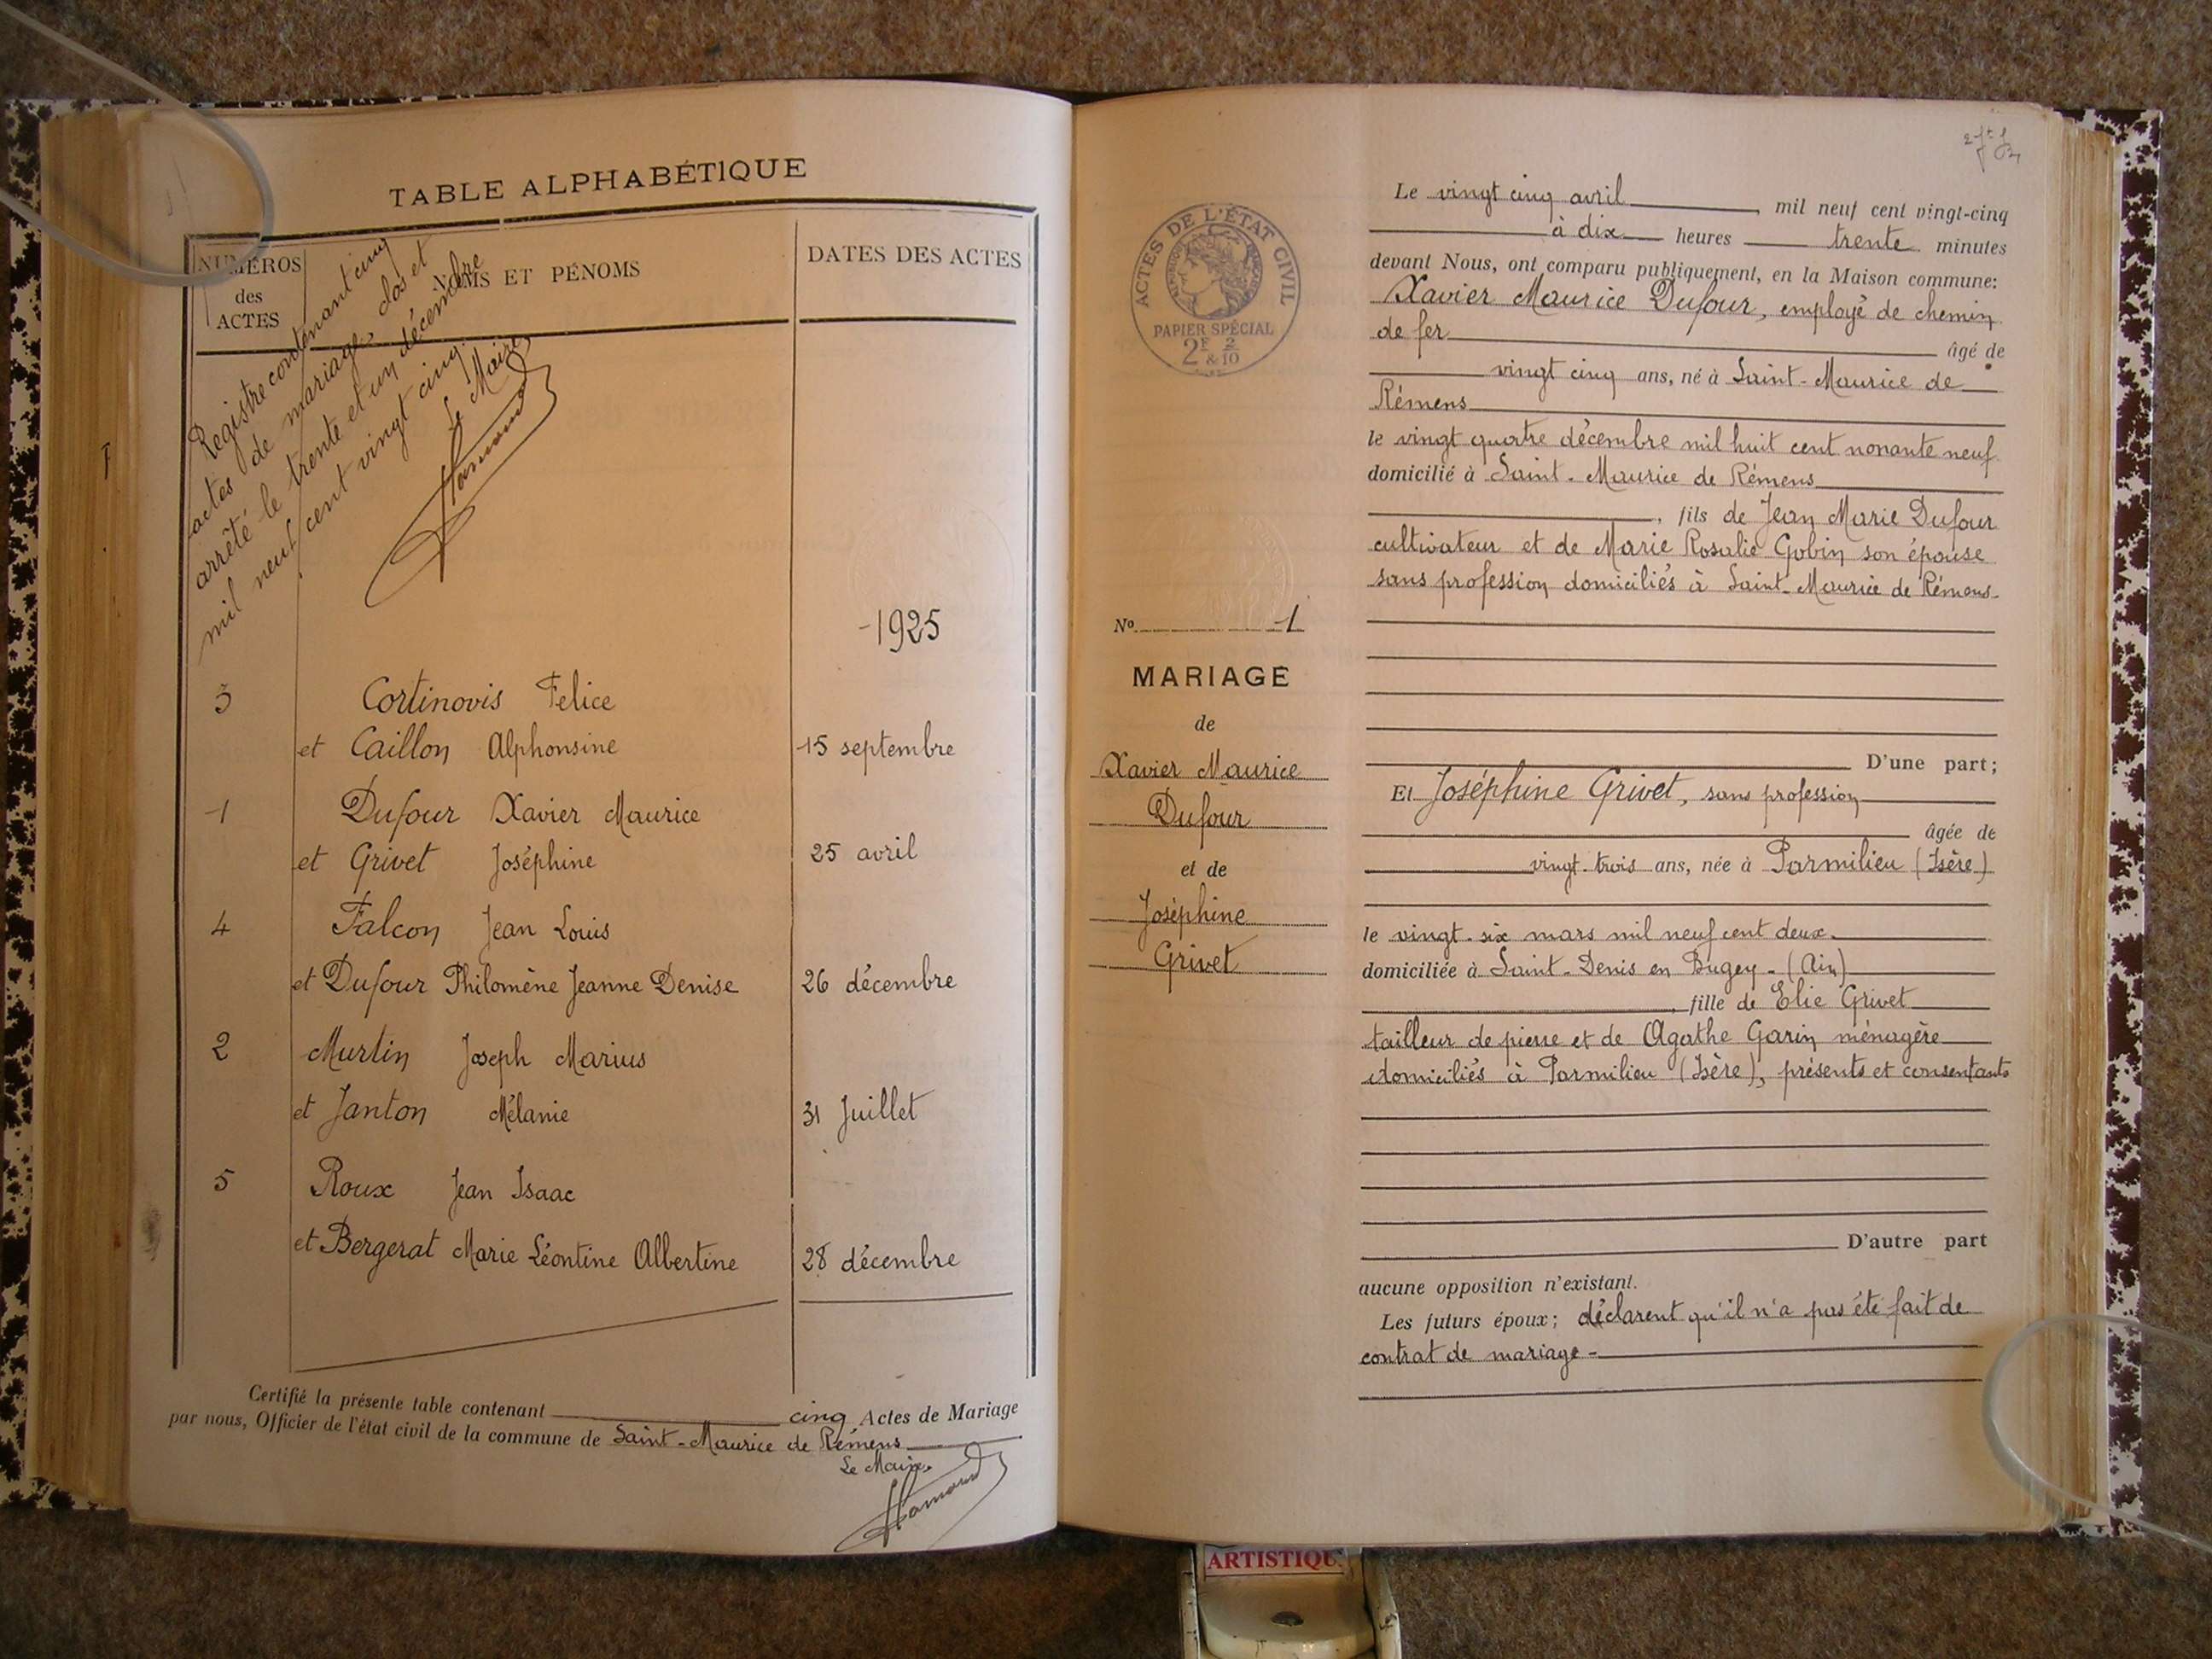 TABLE ALPHABÉTIQUE
NUMÉROS
des
ACTES
NOMS ET PÉNOMS
DATES DES ACTES
Registre contenant cinq
actes de mariage, clos et
arrêté le trente et un décembre
mil neuf cent vingt cinq.
Le Maire,
1925
3 Cortinovis Felice
et Caillon Alphonsine 15 septembre
1 Dufour Xavier Maurice
et Grivet Joséphine 25 avril
4 Falcon Jean Louis
et Dufour Philomène Jeanne Denise 26 décembre
2 Murtin Joseph Marius
et Janton Mélanie 31 Juillet
5 Roux Jean Isaac
et Bergerat Marie Léontine Albertine 28 décembre
Certifié la présente table contenant cinq Actes de Mariage
par nous, Officier de l'état civil de la commune de Saint-Maurice de Rémens
Le Maire,
ACTES DE L'ÉTAT CIVIL
PAPIER SPÉCIAL
2F 2
& 10
No 1
MARIAGE
de
Xavier Maurice
Dufour
et de
Joséphine
Grivet
Le vingt cinq avril mil neuf cent vingt-cinq
à dix heures trente minutes
devant Nous, ont comparu publiquement, en la Maison commune:
Xavier Maurice Dufour, employé de chemin
de fer âgé de
vingt cinq ans, né à Saint-Maurice de
Rémens
le vingt quatre décembre mil huit cent nonante neuf
domicilié à Saint-Maurice de Rémens
, fils de Jean Marie Dufour
cultivateur et de Marie Rosalie Gobin son épouse
sans profession domiciliés à Saint-Maurice de Rémens-
D'une part;
Et Joséphine Grivet, sans profession
âgée de
vingt-trois ans, née à Parmilieu (Isère)
le vingt-six mars mil neuf cent deux.
domiciliée à Saint-Denis en Bugey-(Ain)
, fille de Elie Grivet
tailleur de pierre et de Agathe Garin ménagère
domiciliés à Parmilieu (Isère), présents et consentants
D'autre part
aucune opposition n'existant.
Les futurs époux; déclarent qu'il n'a pas été fait de
contrat de mariage -
ARTISTIQU